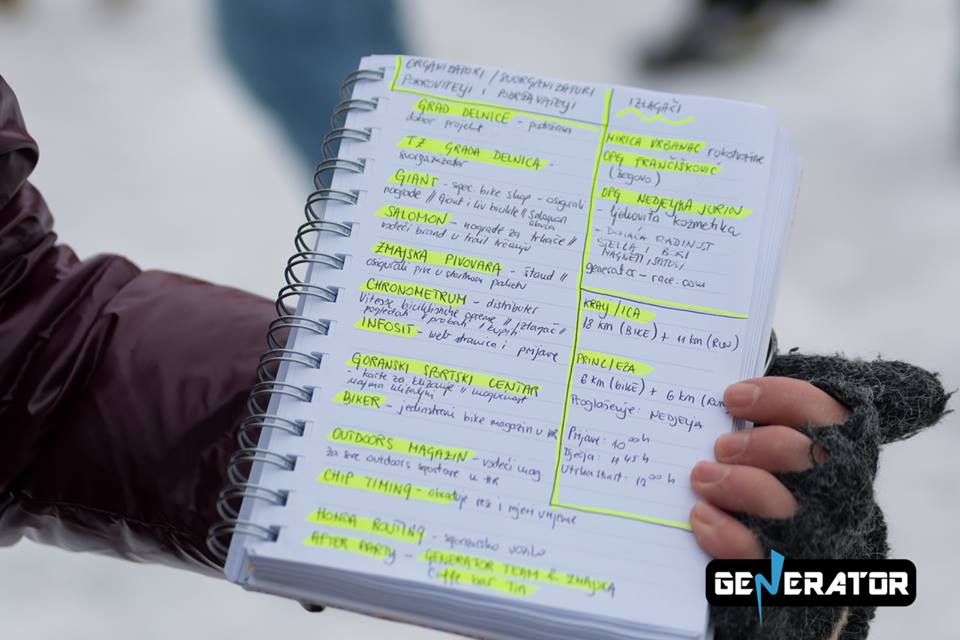 ORGANIZATORI / SUORGANIZATORI
POKROVITELJI I PODRŽAVATELJI
GRAD DELNICE - podržava
dobar projekt
TZ GRADA DELNICA -
suorganizator
GIANT - spec. bike shop - osigurali
nagrade // Giant i Liv bicikle // Salomon
obuća
SALOMON - nagrade za trkače //
vodeći brand u trail trčanju
ZMAJSKA PIVOVARA - štand //
osigurali pivo u startnom paketu
CHRONOMETRUM - distributer
Vitesse biciklističke opreme // Izlagač //
pogledati i probati i kupiti
INFOSIT - web stranica i prijave
GORANSKI SPORTSKI CENTAR
- karte za klizanje // mogućnost
najma klizaljki
BIKER - jedinstveni bike magazin u HR
OUTDOORS MAGAZIN - vodeći mag.
za sve outdoors sportove u HR
CHIP TIMING - obrađuje rez i mjeri vrijeme
HONDA ROUTING - sponzorsko vozilo
AFTER PARTY - GENERATOR TEAM & ZMAJSKA
Caffe bar Tin
IZLAGAČI
MIRICA VRBANAC rukotvorine
OPG FRANČIŠKOVIĆ
OPG NEDJELJKA JURIN
- ljekovita kozmetika
- DOMAĆA RADINOST
STELLA I BORI
MAGNETI /
generator-race.com
KRALJ/ICA
18 km (BIKE) + 11 km (RUN)
PRINC/EZA
6 km (bike) + 6 km (RUN)
Proglašenje: NEDJELJA
Prijave: 10 00h
Djeca: 11 45h
Utrka start: 12 00h
GENERATOR